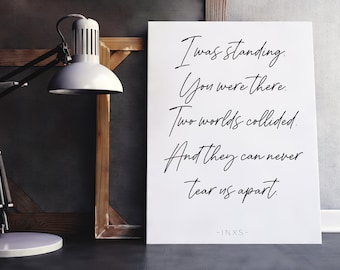 I was standing.
You were there.
Two worlds collided
And they can never
tear us apart.
-INXS-